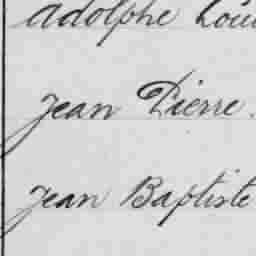 Adolphe Loui
Jean Pierre.
Jean Baptiste